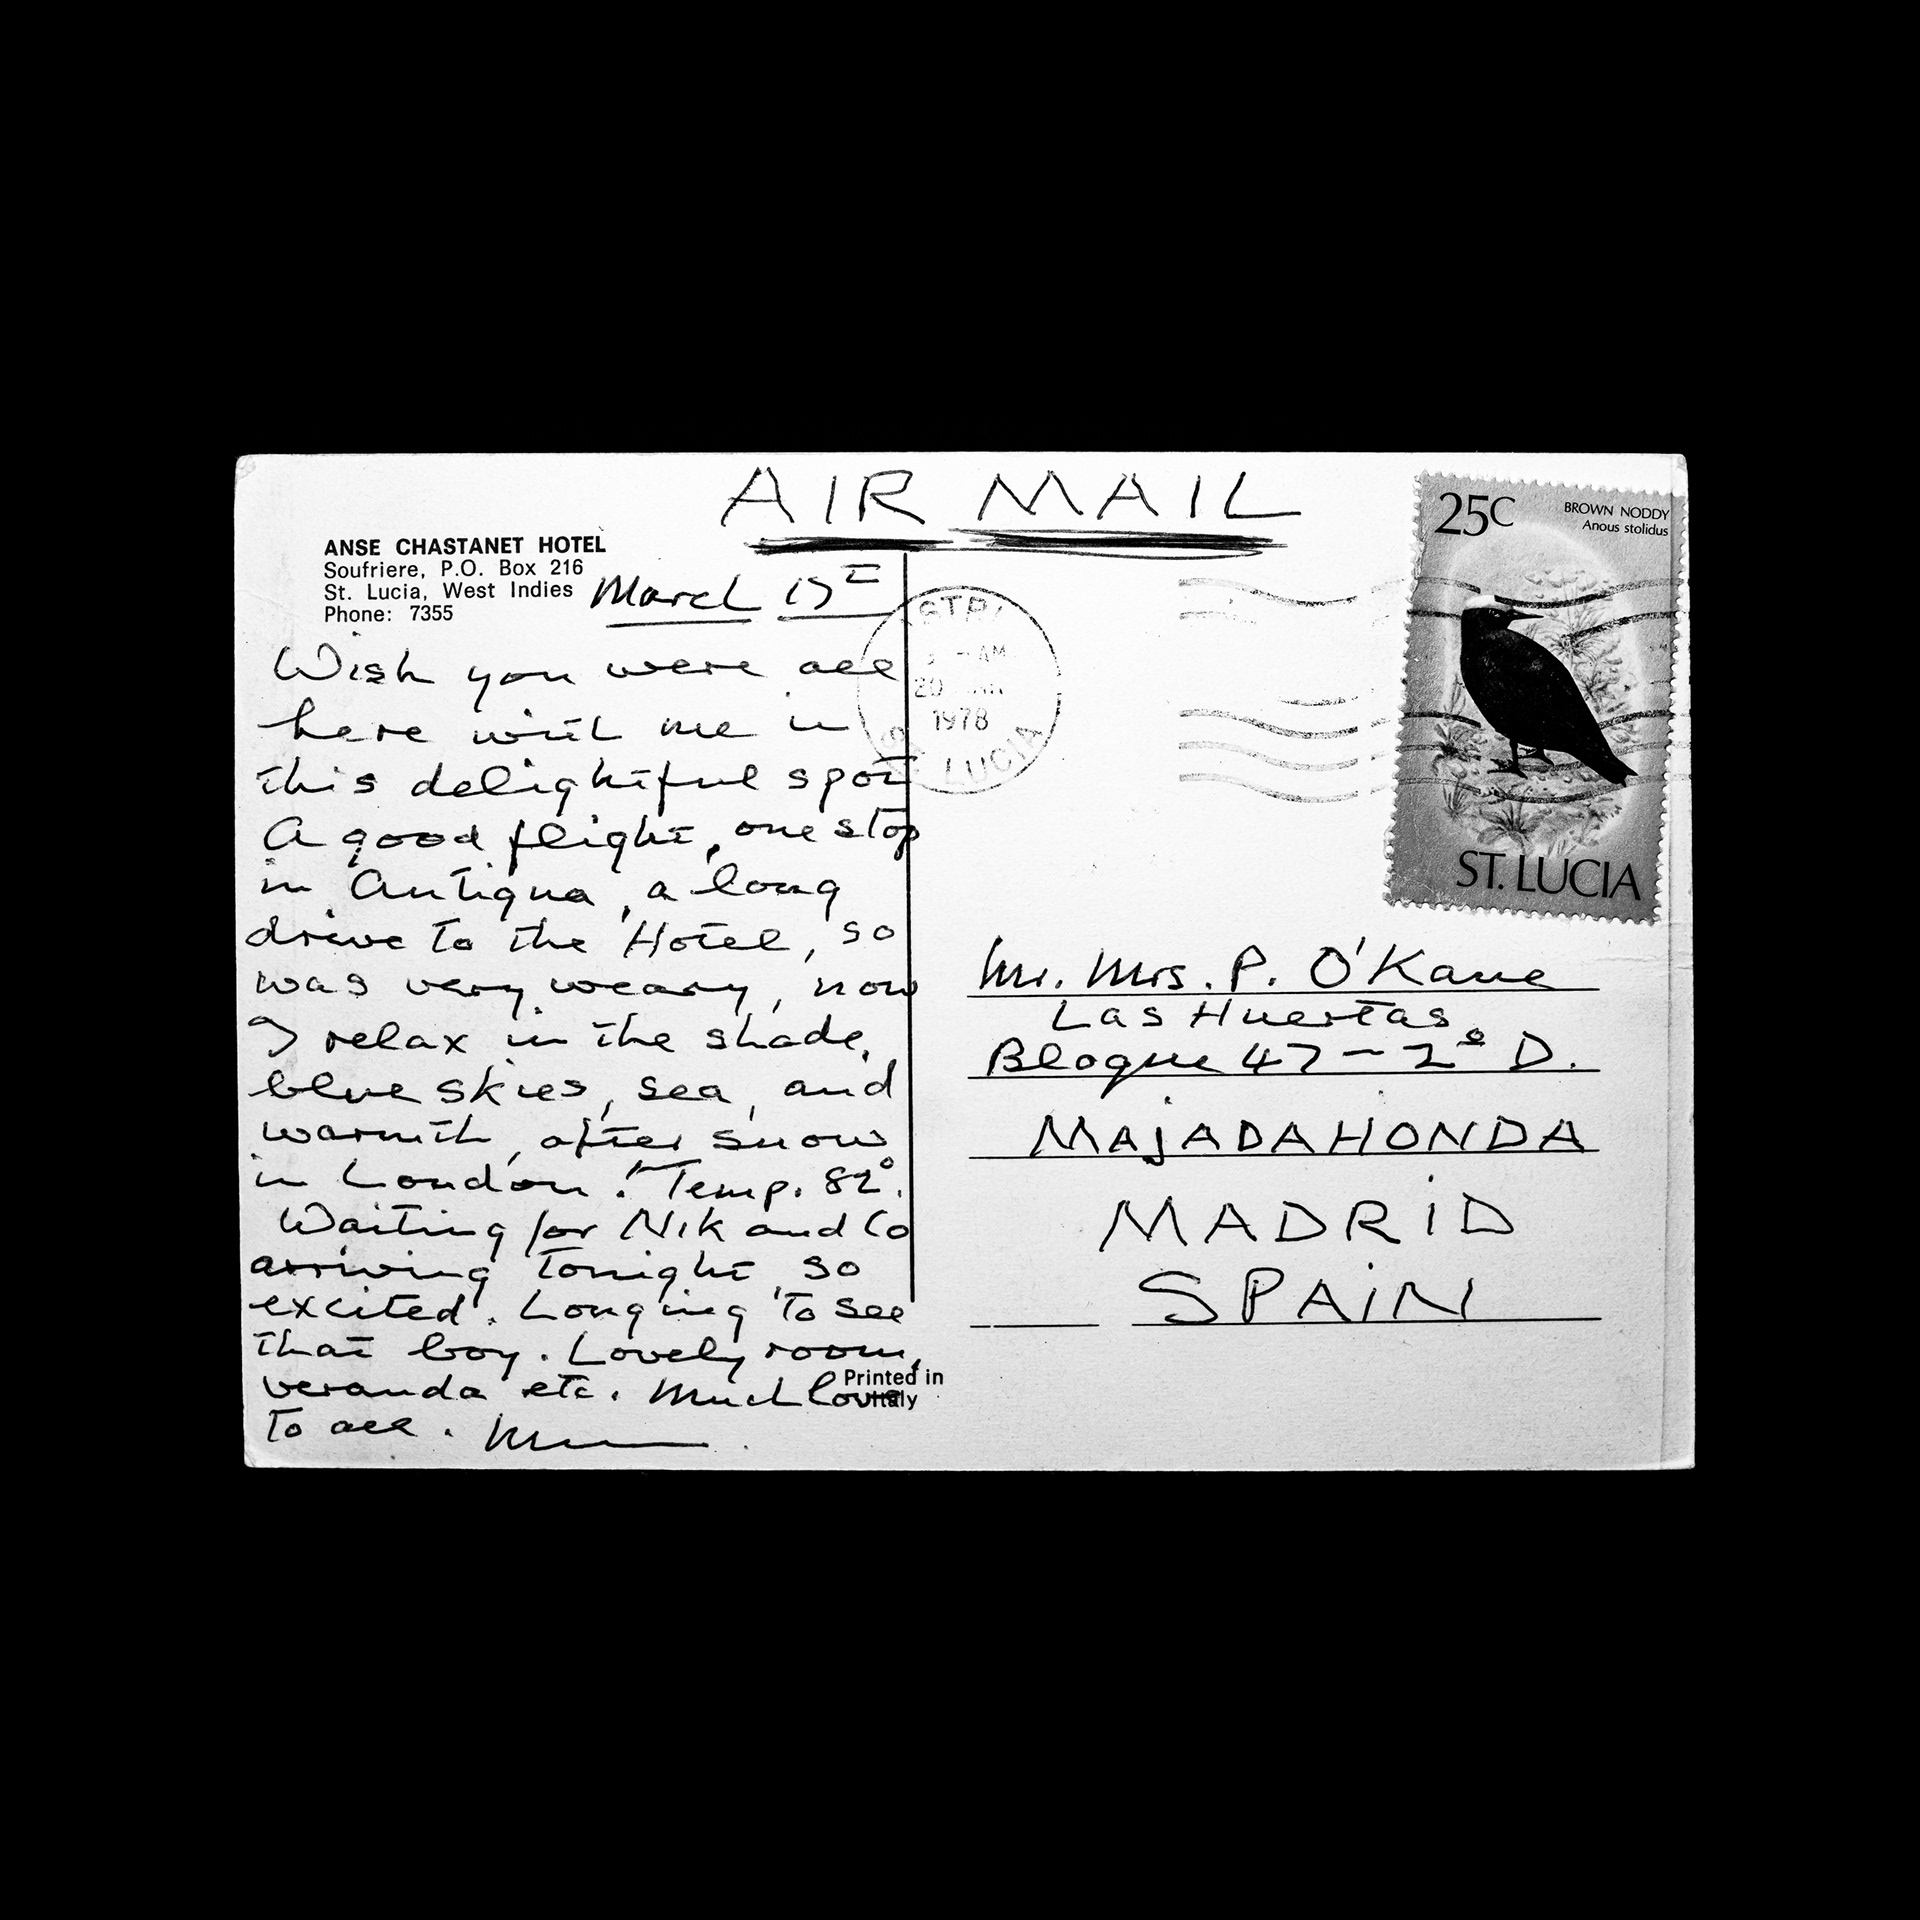 AIR MAIL
ANSE CHASTANET HOTEL
Soufriere, P.O. Box 216
St. Lucia, West Indies
Phone: 7355
March
Wish you were all
here with me in
this delightful spot
A good flight, one stop
in Antigua, a long
drive to the Hotel, so
was very weary, now
I relax in the shade,
blue skies, sea, and
warmth, after snow
in London! Temp. 82°.
Waiting for Nik and Co
arriving tonight, so
excited. Longing to see
that boy. Lovely room,
veranda etc. Much love
to all.
Printed in
Italy
20
1978
LUCIA
25C
BROWN NODDY
Anous stolidus
ST. LUCIA
Mr. Mrs. P. O'Kane
Las Huertas
Bloque 47 - 2º D.
MAJADAHONDA
MADRID
SPAIN